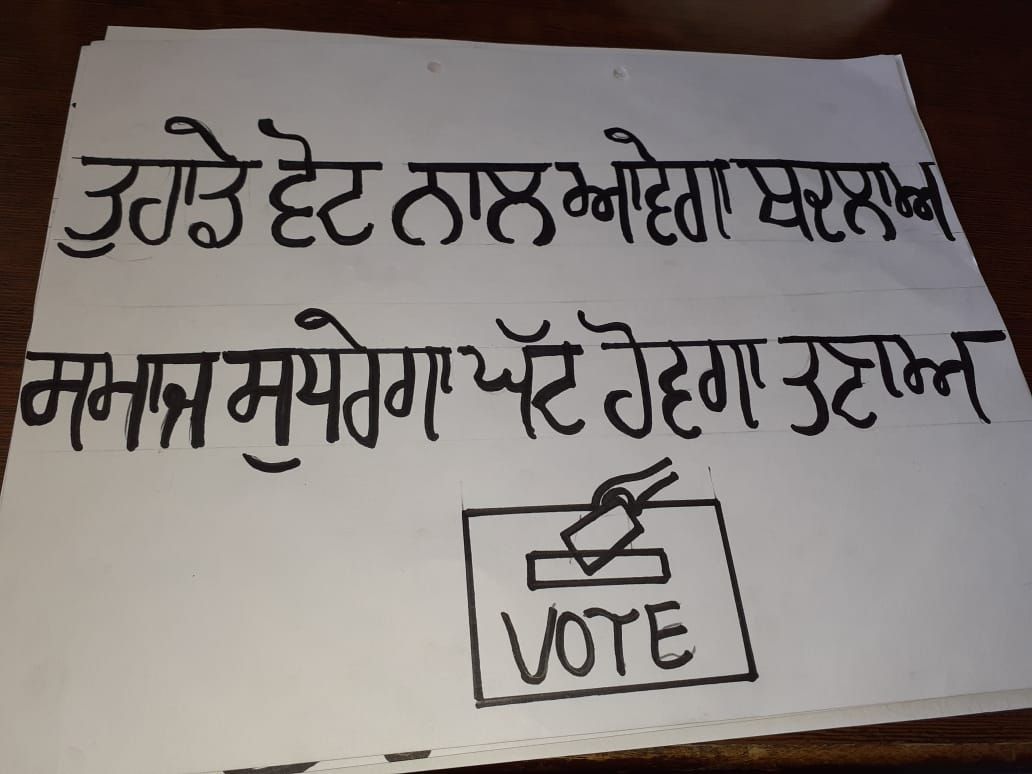 ਤੁਹਾਡੇ ਵੋਟ ਨਾਲ ਆਵੇਗਾ ਬਦਲਾਅ
ਸਮਾਜ ਸੁਧਰੇਗਾ ਘੱਟ ਹੋਵਗਾ ਤਣਾਅ
VOTE